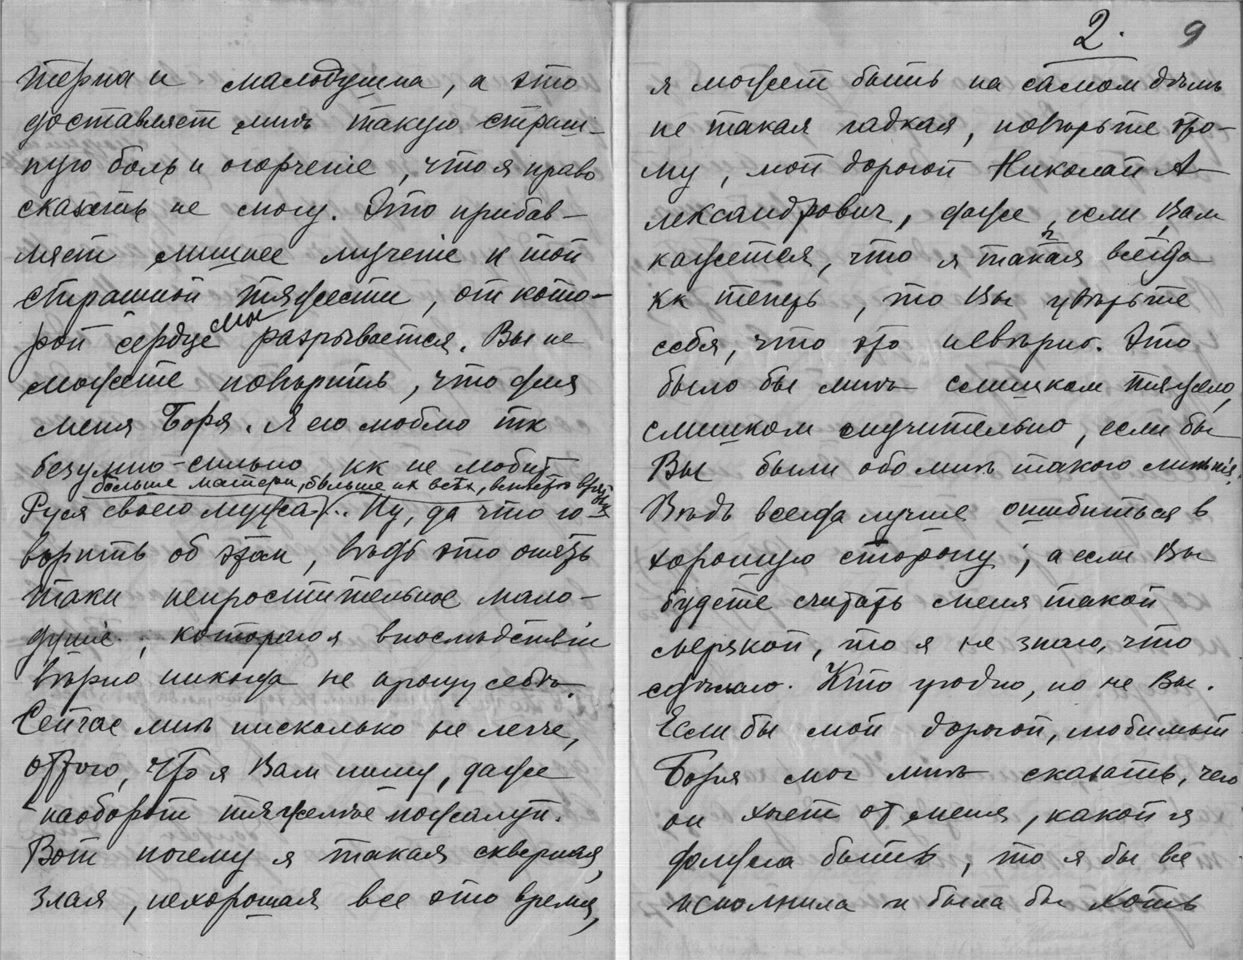 терна и малодушна, а это
доставляет мнѣ такую страш-
ную боль и огорченіе, что я право
сказать не могу. Это прибав-
ляет лишнее мученіе к той
страшной тяжести, от кото-
рой сердце мое разрывается. Вы не
можете повѣрить, что для
меня Боря. Я его люблю тк
безумно-сильно, кк не любит
больше матери, больше их всѣх, вместо
Руся своего мужа. Ну, да что го-
ворить об этом, вѣдь это опять
таки непростительное мало-
душіе, котораго я впослѣдствіи
вѣрно никогда не прощу себѣ.
Сейчас мнѣ нисколько не легче,
оттого, что я Вам пишу, даже
наоборот тяжелѣе пожалуй.
Вот почему я такая скверная,
злая, нехорошая все это время,
2. 9
я может быть на самом дѣлѣ
не такая гадкая, повѣрьте это-
му, мой дорогой Николай А-
лександрович, даже, если Вам
кажется, что я такая всегда
кк теперь, то Вы увѣрьте
себя, что это невѣрно. Это
было бы мнѣ слишком тяжело,
слишком мучительно, если бы
Вы были обо мнѣ такого мнѣнія.
Вѣдь всегда лучше ошибиться в
хорошую сторону; а если Вы
будете считать меня такой
мерзкой, то я не знаю, что
сдѣлаю. Кто угодно, но не Вы.
Если бы мой дорогой, любимый
Боря мог мнѣ сказать, чего
он хочет от меня, какой я
должна быть, то я бы все
исполнила и была бы хоть